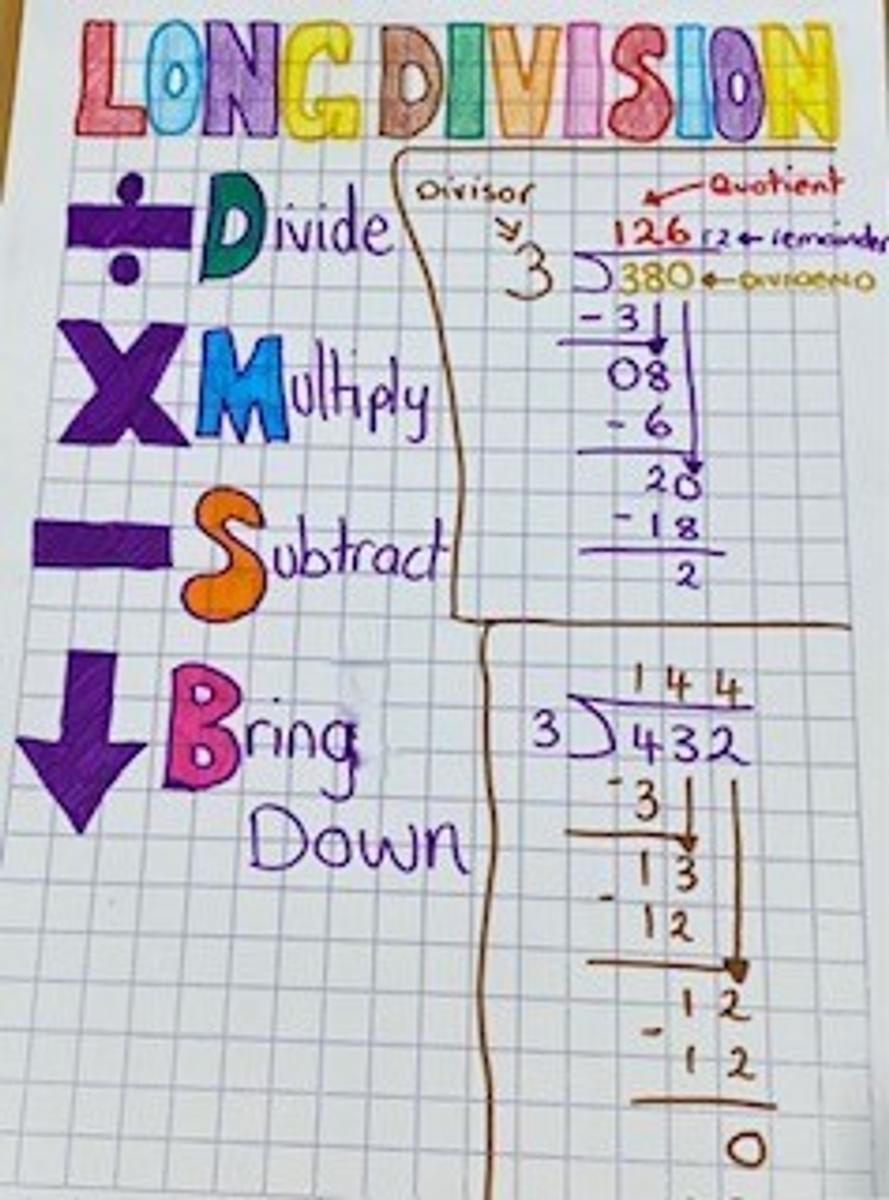 LONG DIVISION
÷ Divide
X Multiply
- Subtract
Bring
Down
Divisor
Quotient
126 r2 ← remainder
3 380 ← DIVIDEND
- 3
08
- 6
20
- 18
2
144
3 432
- 3
13
- 12
12
- 12
0